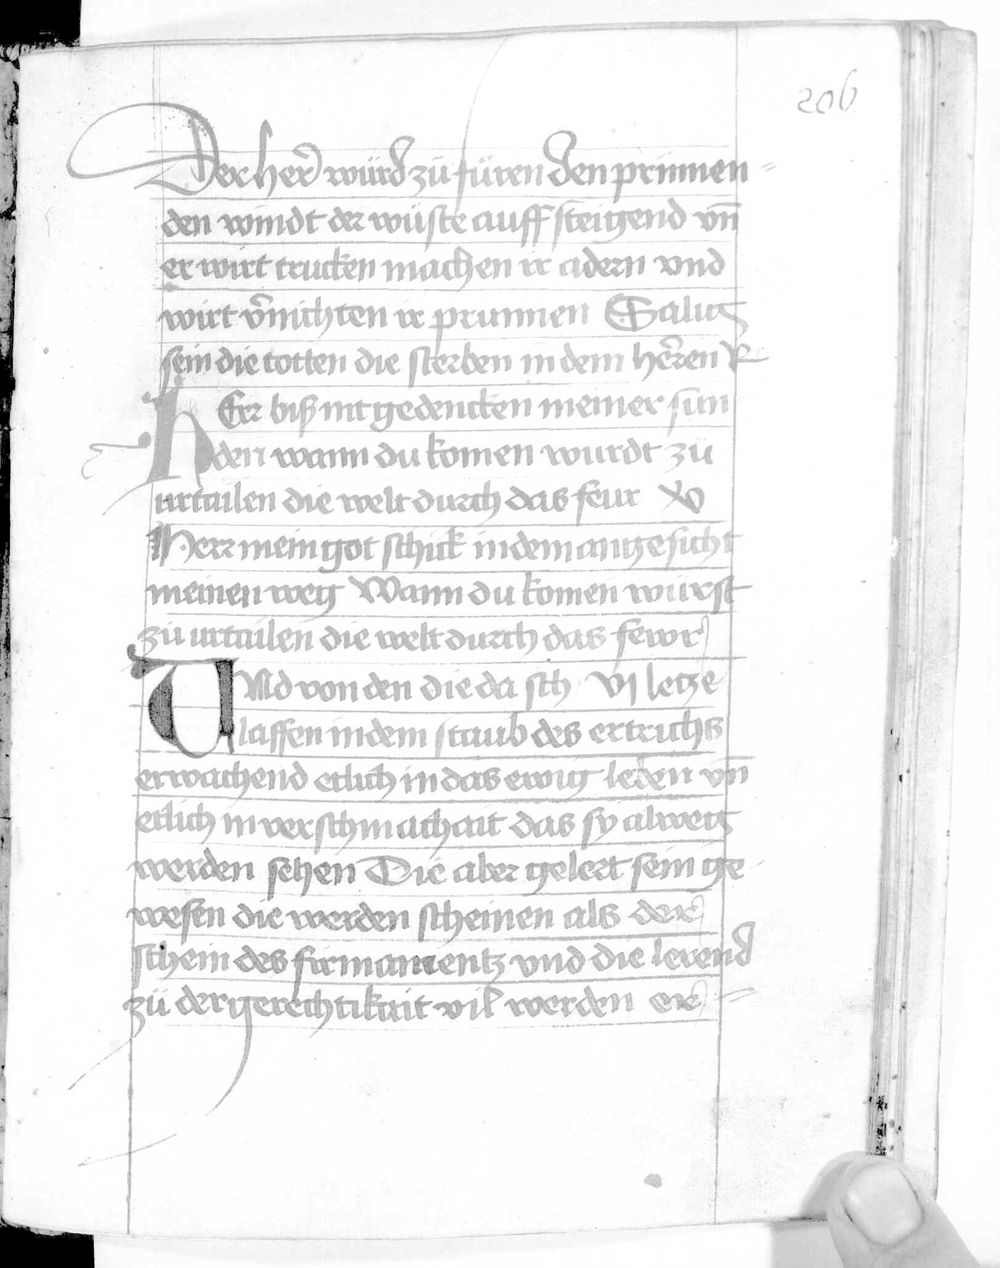 206
Der her̃ würd zü füren den prinnen
den windt der wüste auff steigend vn̄
er wirt trucken machen ir adern vnd
wirt v̄nichten ir prunnen Salig
sein die totten die sterben in dem her̃en
HErr biß nit gedencken meiner sün
den wann du komen wurdt zü
urtailen die welt durch das feur
Herr mein got schick in dem angesicht
meinen weg Wann du komen würst
zü urtailen die welt durch das fewr
VNd von den die da sch vj letze
laffen in dem staub des ertrichs
erwachend etlich in das ewig leben vn̄
etlich in verschmachait das sy alweg
werden sehen Die aber gelert sein ge
wesen die werden scheinen als der
schein des firmamentz vnd die lerend
zü der gerechtikait vil werden er